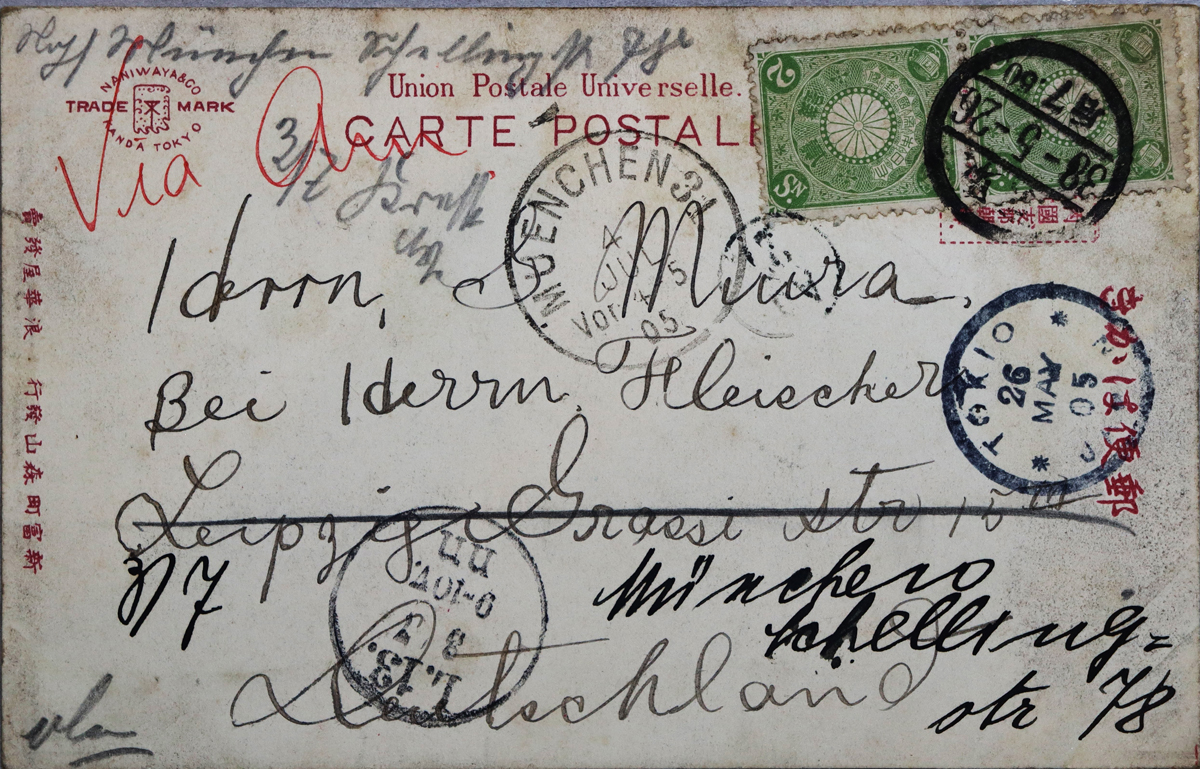 München Schellingstr 78
Union Postale Universelle.
CARTE POSTALE
NANIWAYA & CO
TRADE MARK
KANDA TOKYO
Via
3/7
MUENCHEN 31
4 JUL
Vor
05
2 SN
38-5-26
TOKIO
26
MAY
05
郵便はがき
Herrn, S Miura,
Bei Herrn, Fleischer
Leipzig Grassi str 15 III
3/7
München
Schelling-
str 78
Deutschland
L. 13.
3 7
9-10V.
新富町森山發行 浪華屋發